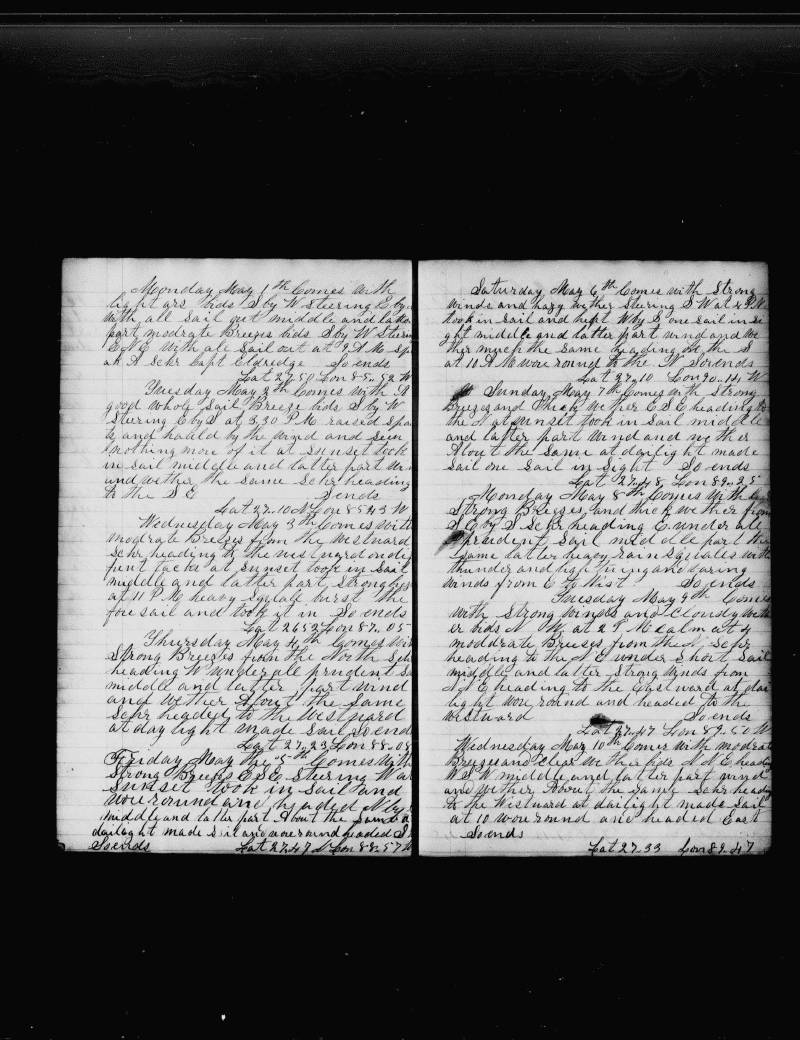 Monday May 1th Comes with
light ars hids S by W Steering E by
with all sail out middle and latter
part modrate Breezes hids S by W Steerin
E N E with all Sail out at 9 A M Sp
ak A Schr Capt Eldredge So ends
Lat 27.50 Lon 85.52 W
Tuesday May 2th Comes with A
good whole Sail Breeze hds S by W
Steering E by S at 3.30 P M raised Spa
& and hald by the wind and seen
nothing more of it at sunset took
in sail middle and latter part win
and wither the same Schr heading
to the S E Sends
Lat 27.10 N Lon 85.43 W
Wednesday May 3th Comes with
modrate Breezes from the westward
Schr heading to the westward on de
frent tacks at sunset took in sail
middle and latter part strong
at 11 P M heavy squale burst the
fore sail and took it in So ends
Lat 26.52 Lon 87.05
Thursday May 4th Comes with
Strong Breezes from the North Sch
heading W under all prudent Sa
middle and latter part wind
and wether About the same
Schr headed to the Westward
at day light made sail So end
Lat 27.23 Lon 88.08
Friday May the 5th Comes with
Strong Breezes E S E Steering W at
Sunset took in sail and
wore round and headed N by
middle and latter part About the same a
daylight made sail and wore round headed S
So ends Lat 27.47 N Lon 88.57 W
Saturday May 6th Comes with Strong
winds and hazy wether Steering S W at 4 P M
took in sail and kept W by S one sail in si
ght middle and latter part wind and we
ther much the same heading to the S
at 10 A M wore round to the N So ends
Lat 27.10 Lon 90.14 W
Sunday May 7th Comes with Strong
Breezes and thick wether E S E heading to
the N at sunset took in sail middle
and latter part wind and wether
About the same at daylight made
sail one sail in sight So ends
Lat 27.48 Lon 89.25
Monday May 8th Comes with
Strong Breezes and thick wether from
S E by S Schr heading E under all
prudent sail middle part the
same latter heavy rain squales with
thunder and lightning and varing
winds from E to West So ends
Tuesday May 9th Comes
with strong winds and cloudy weth
er hids N W at 2 P M calm at 4
modrate Breezes from the N Schr
heading to the N E under short sail
middle and latter strong winds from
N N E heading to the Eastward at day
light wore round and headed to the
westward So ends
Lat 27.47 Lon 89.50 W
Wednesday May 10th Comes with modrate
Breeze and clear wether hids N N E headin
W S W middle and latter part wind
and wether About the same Schr headg
to the Westward at daylight made sail
at 10 wore round and headed East
So ends
Lat 27.33 Lon 89.47